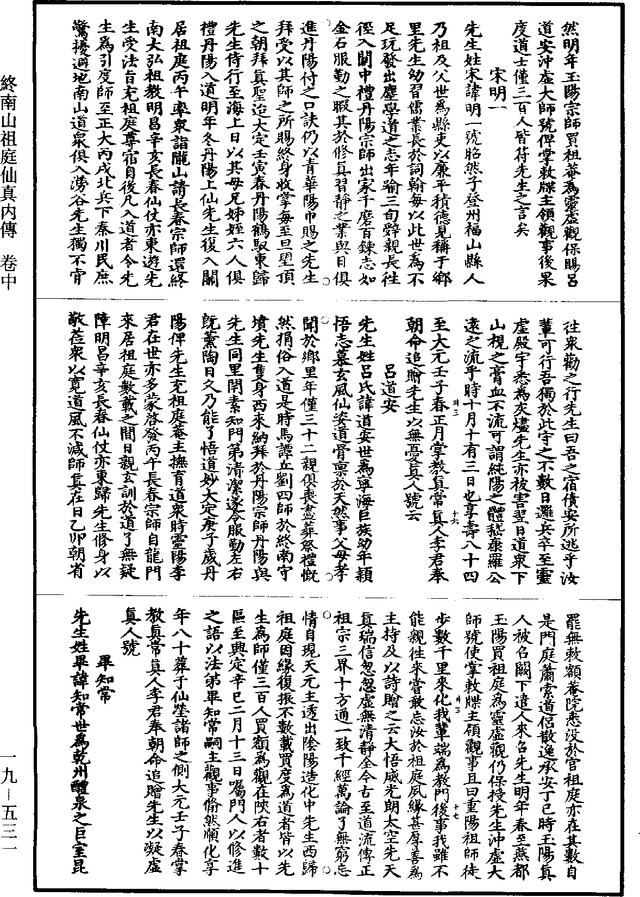 然明年玉陽宗師買祖菴為靈虛觀保賜呂
道安沖虛大師號俾掌教牒主領觀事後果
度道士僅三百人皆符先生之言矣
宋明一
先生姓宋諱明一號昭然子登州福山縣人
乃祖及父世為縣吏以廉平積德見稱于鄉
里先生幼習儒業長於詞翰每以此世為不
足玩發出塵學道之志年踰三旬辭親長往
徑入關中禮丹陽宗師出家千磨百鍊志如
金石服勤之暇其於修真習靜之業與日俱
進丹陽付之口訣仍以青華陽巾賜之先生
拜受以其師之所賜終身收掌每至旦望頂
之朝拜真聖迨大定壬寅春丹陽鶴馭東歸
先生侍行至海上日以其母兄姊姪六人俱
禮丹陽入道明年冬丹陽上仙先生復入關
居祖庭丙午率眾詣隴山請長春宗師還終
南大弘祖教明昌辛亥長春仙仗亦東遊先
生受法旨充祖庭尊宿自後凡入道者令先
生為引度師至正大丙戌北兵下秦川民庶
驚擾避地南山道眾俱入澇谷先生獨不肯
往眾勸之行先生曰吾之宿債安所逃乎汝
輩可行吾獨於此守之不數日邏兵卒至靈
虛殿宇悉為灰燼先生亦被害翌日道眾下
山視之膏血不流可謂純陽之體嵇康羅公
遠之流乎時十月十有三日也享壽八十四
至大元壬子春正月掌教真常真人李君奉
朝命追贈先生以無憂真人號云
呂道安
先生姓呂氏諱道安世為寧海巨族幼年穎
悟志慕玄風仙姿道骨稟於天然事父母孝
聞於鄉里年僅三十二親俱喪盡葬祭禮慨
然捐俗入道是時馬譚丘劉四師於終南守
墳先生隻身西來納拜於丹陽宗師丹陽與
先生同里閈素知門弟清潔遂令服勤左右
既薰陶日久乃能了悟道妙大定庚子歲丹
陽俾先生充祖庭菴主撫育道眾時雲陽李
君在世亦多蒙啓發丙午長春宗師自龍門
來居祖庭數載之間日親玄訓於道了無疑
障明昌辛亥長春仙仗亦東歸先生修身以
敬莅眾以寬道風不減師真在日乙卯朝省
罷無敕額菴院悉沒於官祖庭亦在其數自
是門庭蕭索道侶散逸承安丁巳時玉陽真
人被召闕下遣人來召先生明年春至燕都
玉陽買祖庭為靈虛觀仍保授先生沖虛大
師號使掌教牒主領觀事且曰重陽祖師徒
步數千里來化我輩端為教門後事我雖不
能親往來嘗敢忘汝於祖庭夙緣甚厚善為
主持及以詩贈之云大悟威光朗太空先天
真瑞信忽忽虛無清靜全今古至道流傳正
祖宗三界十方通一致千經萬論了無窮忘
情自現天元主透出陰陽造化中先生西歸
祖庭因緣復振不數載買度為道者皆以先
生為師僅三百人買額為觀在陝右者數十
區至興定辛巳二月十三日囑門人以修進
之語以法弟畢知常嗣主觀事翛然順化享
年八十葬于仙塋諸師之側大元壬子春掌
教真常真人李君奉朝命追贈先生以凝虛
真人號
畢知常
先生姓畢諱知常世為乾州醴泉之巨室昆
終南山祖庭仙真內傳 卷中
一九－五三一